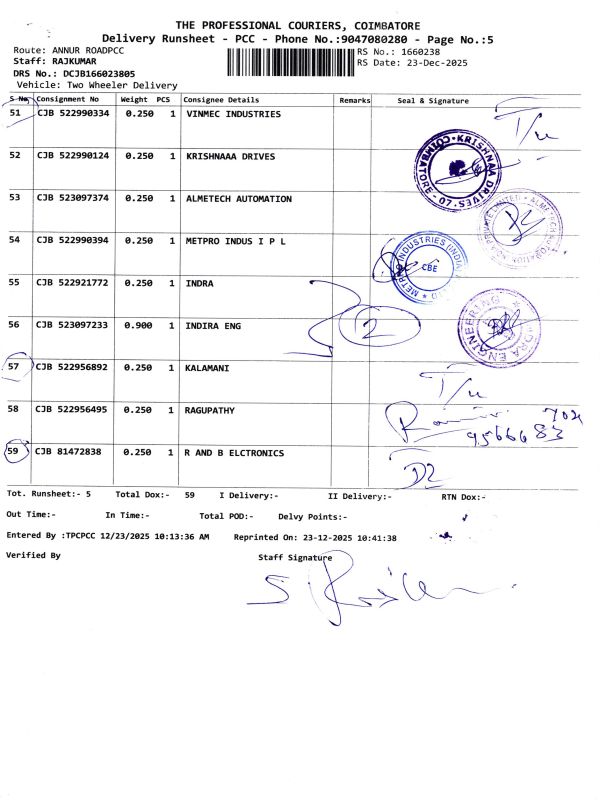 THE PROFESSIONAL COURIERS, COIMBATORE
Delivery Runsheet - PCC - Phone No.:9047080280 - Page No.:5
Route: ANNUR ROADPCC RS No.: 1660238
Staff: RAJKUMAR RS Date: 23-Dec-2025
DRS No.: DCJB166023805
Vehicle: Two Wheeler Delivery
S No. Consignment No Weight PCS Consignee Details Remarks Seal & Signature
51 CJB 522990334 0.250 1 VINMEC INDUSTRIES
52 CJB 522990124 0.250 1 KRISHNAAA DRIVES
KRISHNAA DRIVES COIMBATORE - 07
53 CJB 523097374 0.250 1 ALMETECH AUTOMATION
54 CJB 522990394 0.250 1 METPRO INDUS I P L
CBE
55 CJB 522921772 0.250 1 INDRA
56 CJB 523097233 0.900 1 INDIRA ENG 2
57 CJB 522956892 0.250 1 KALAMANI
58 CJB 522956495 0.250 1 RAGUPATHY
9566683
59 CJB 81472838 0.250 1 R AND B ELCTRONICS
D2
Tot. Runsheet:- 5 Total Dox:- 59 I Delivery:- II Delivery:- RTN Dox:-
Out Time:- In Time:- Total POD:- Delvy Points:-
Entered By :TPCPCC 12/23/2025 10:13:36 AM Reprinted On: 23-12-2025 10:41:38
Verified By Staff Signature